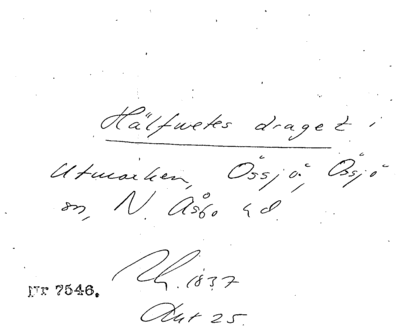 Hälfwetes draget i
Utmarken, Össjö, Össjö
sn, N. Åsbo hd.
1837
nr 7546.
Akt 25.